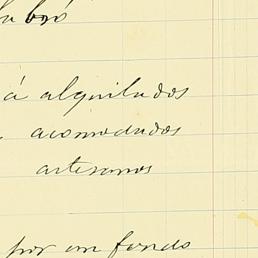 á alquilados
acomodados
artesanos
por un fondo